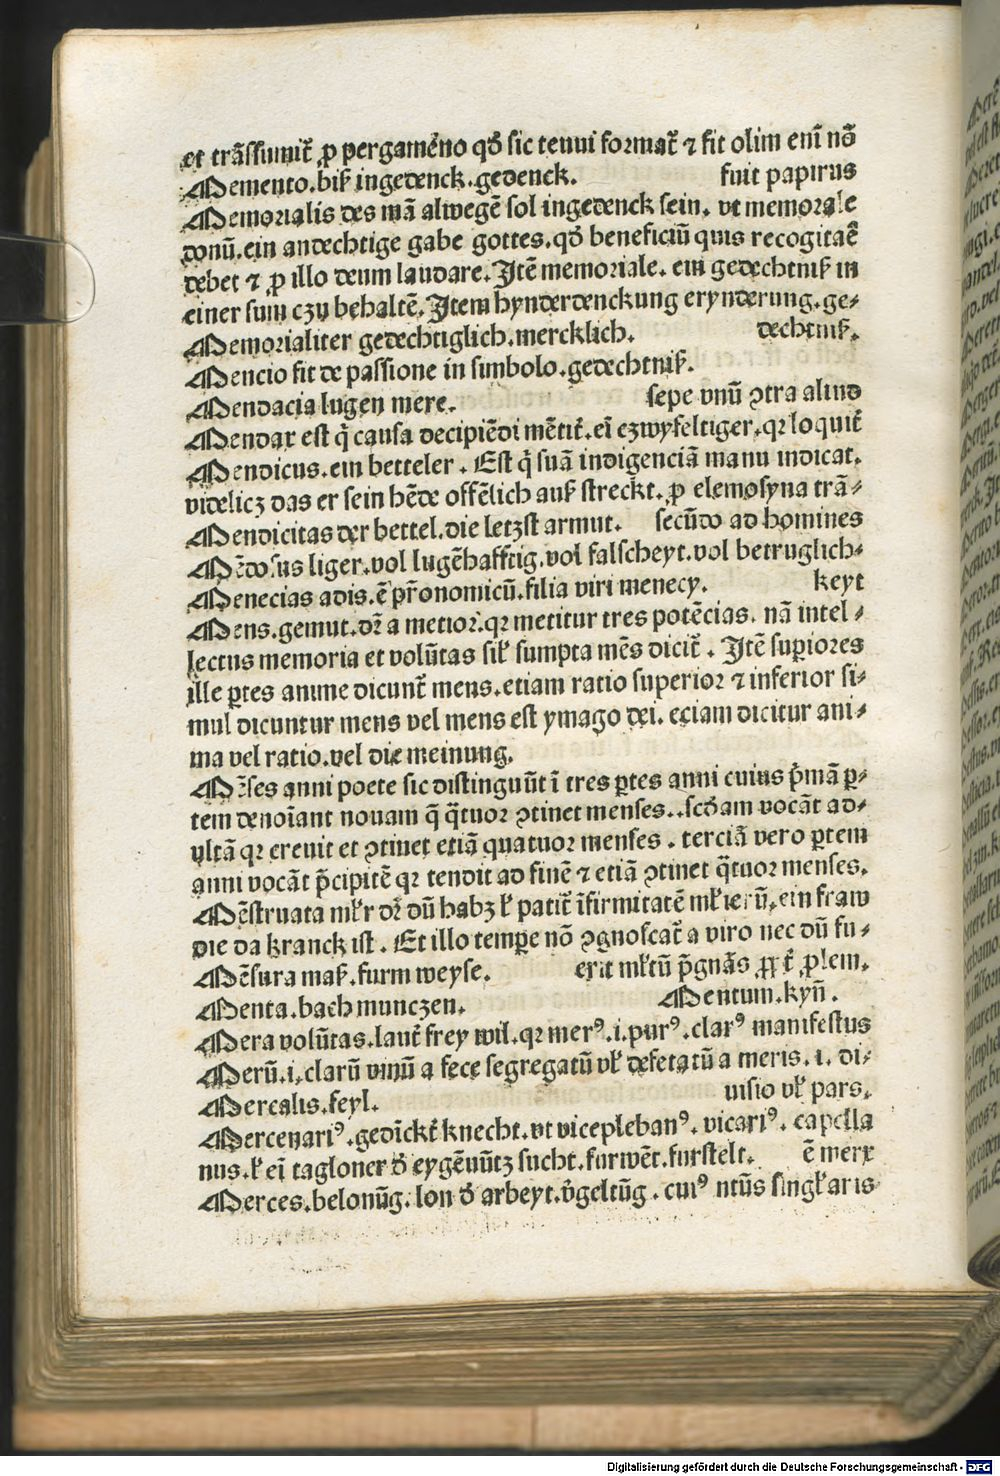 et trãſſumit᷑ ꝓ pergamẽno qð ſic tenui format᷑ ⁊ fit olim enĩ nõ
Memento. biſ ingedenck. gedenck. fuit papirus
Memorialis des mã alwegẽ ſol ingedenck ſein. vt memorale
donũ. ein andechtige gabe gottes. qð beneficiũ quis recogitaẽ
debet ⁊ ꝓ illo deum laudare. Jtẽ memoriale. ein gedechtniſ in
einer ſum czu behaltẽ. Jtem hynderdenckung erynderung. ge-
Memorialiter gedechtiglich. mercklich. dechtniſ.
Mencio fit de paſſione in ſimbolo. gedechtniſ.
Mendacia lugen mere. ſepe vnũ ꝯtra aliud
Mendax eſt q̃ cauſa decipiẽdi mẽtit᷑. eĩ czwyfeltiger. qꝛ loquit᷑
Mendicus. ein betteler. Eſt q̃ ſuã indigenciã manu indicat.
videlicz das er ſein hẽde offẽlich auſ ſtreckt. ꝓ elemoſyna trã-
Mendicitas der bettel. die letzſt armut. ſecũdo ad homines
Mẽdoſus liger. vol lugẽhafftig. vol falſcheyt. vol betruglich-
Menecias adis. ẽ pr̃onomicũ. filia viri menecy. keyt
Mens. gemut. dr̃ a metior. qꝛ metitur tres potẽcias. nã intel-
lectus memoria et volũtas ſil̕ ſumpta mẽs dicit᷑. Jtẽ ſuꝑiores
ille ꝑtes anime dicunt᷑ mens. etiam ratio ſuperior ⁊ inferior ſi-
mul dicuntur mens vel mens eſt ymago dei. eciam dicitur ani-
ma vel ratio. vel die meinung.
Mẽſes anni poete ſic diſtinguũt ĩ tres ꝑtes anni cuius p̃mã ꝑ-
tem denoĩant nouam q̃ q̃tuor ꝯtinet menſes. ſcðam vocãt ad-
ultã qꝛ creuit et ꝯtinet etiã quatuor menſes. terciã vero ꝑtem
anni vocãt p̃cipitẽ qꝛ tendit ad finẽ ⁊ etiã ꝯtinet q̃tuor menſes.
Mẽſtruata ml̕r dr̃ dũ habꝫ l̕ patit᷑ ĩfirmitatẽ ml̕ierũ. ein fraw
die da kranck iſt. Et illo tempe nõ ꝯgnoſcat᷑ a viro nec dũ fu-
Mẽſura maſ. furm weyſe. erit ml̕tũ p̃gnãs ꝓꝑt᷑ ꝓlem.
Menta. bachmunczen. Mentum. kyñ.
Mera volũtas. laut᷑ frey wil. qꝛ merꝰ. i. purꝰ. clarꝰ manifeſtus
Merũ. i. clarũ vinũ a fece ſegregatũ vl̕ defetatũ a meris. i. di-
Mercalis. feyl. uiſio vl̕ pars.
Mercenariꝰ. gedĩckt᷑ knecht. vt viceplebanꝰ. vicariꝰ. capella
nus. l̕ eĩ tagloner ð eygẽnũtz ſucht. furwẽt. furſtelt. ẽ merx
Merces. belonũg. lon ð arbeyt. v̓geltũg. cuiꝰ ntũs ſingl̕aris
Digitalisierung gefördert durch die Deutsche Forschungsgemeinschaft - DFG